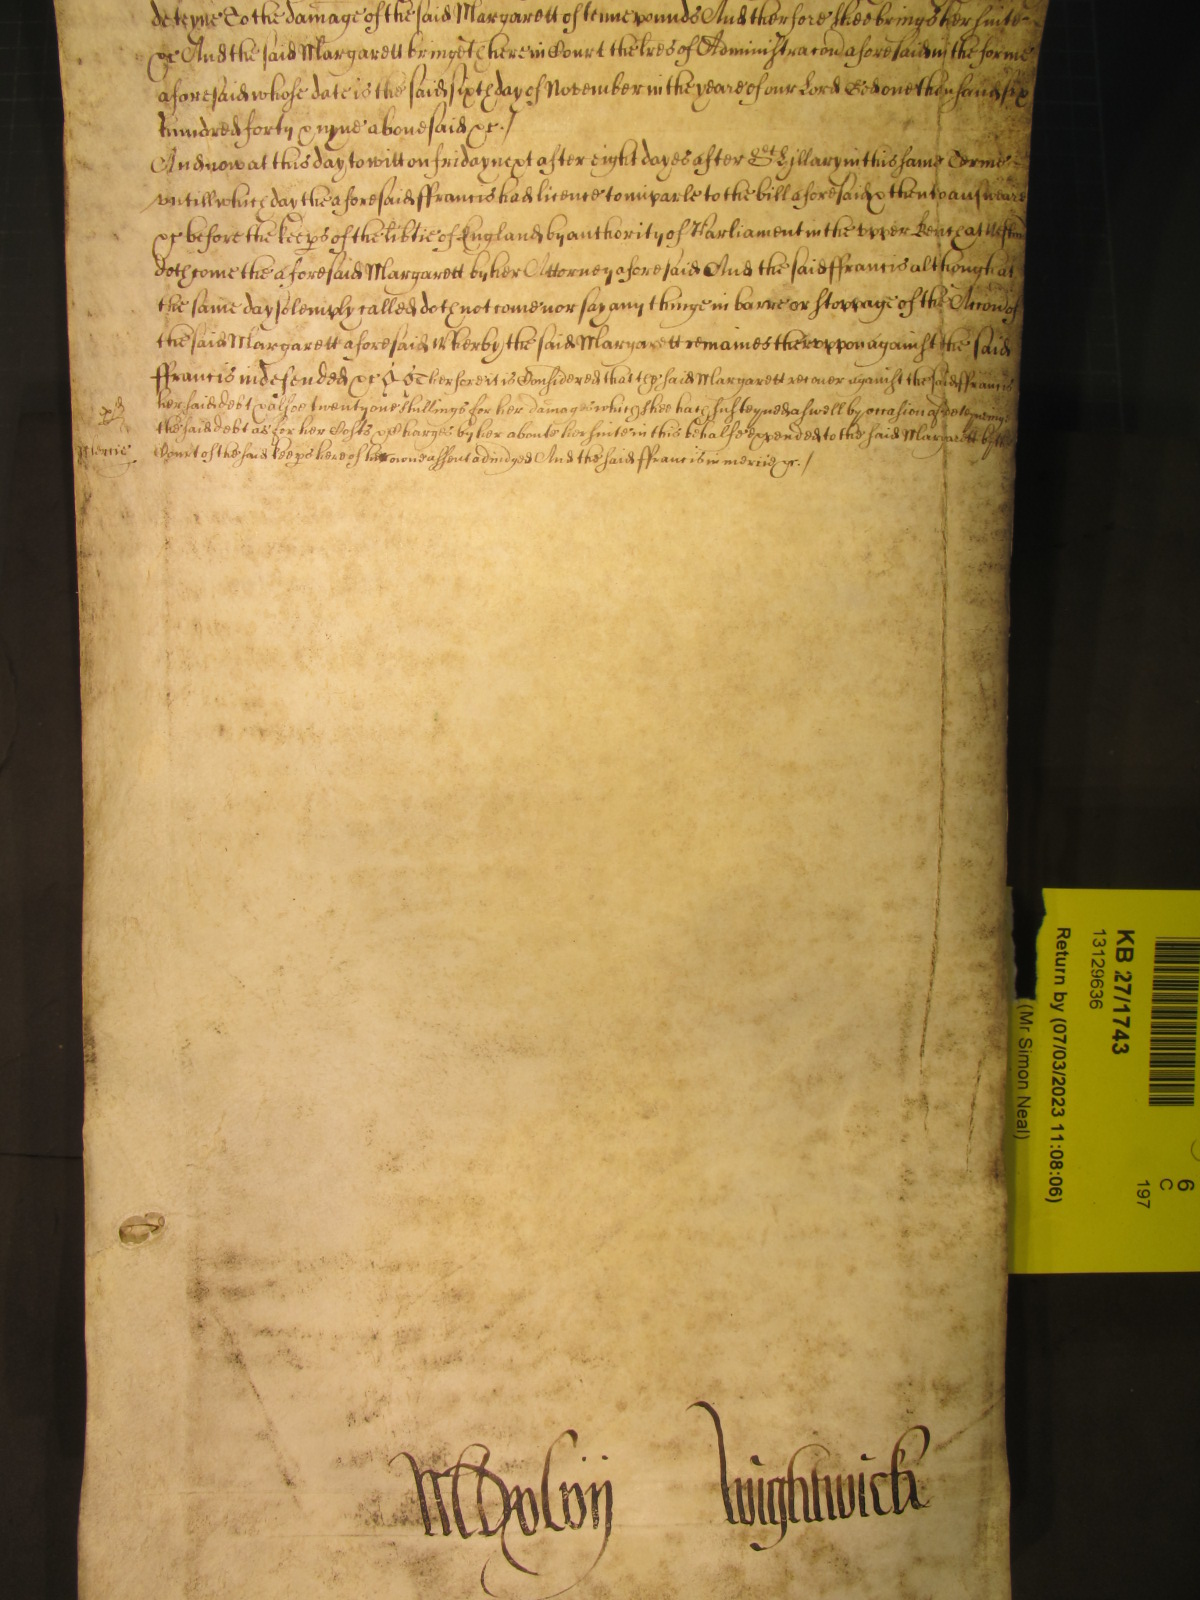 deteyne To the damage of the said Margarett of tenne pounds And therfore shee brings her suite
&c And the said Margarett bringeth here in Court the lres of Administracon aforesaid in the forme
aforesaid whose date is the said sixth day of November in the yeare of our Lord God one thousand six
hundred forty & nyne abovesaid &c./
And now at this day to witt on friday next after eight dayes after St Hillary in this same Terme
untill which day the aforesaid ffrancis had licence to imparle to the bill aforesaid & then to answeare
&c before the keeps of the libtie of England by authority of Parliament in the upper Bench at Westm
doth come the aforesaid Margarett by her Attorney aforesaid And the said ffrancis although at
the same day solemply called doth not come nor say any thinge in barre or stoppage of the Accon of
the said Margarett aforesaid Wherby the said Margarett remaines theruppon against the said
ffrancis undefended &c Therfore it is Considered that the said Margarett recover against the said ffrancis
her said debt & alsoe twenty one shillings for her damages which shee hath susteyned aswell by occasion of deteyneing
the said debt as for her Costs & Charges by her about her suite in this behalfe expended to the said Margarett by the
Court of the said keeps here of her owne assent adiudged And the said ffrancis in mercie &c./
Mercie
MDxlvij Wightwick
KB 27/1743
13129636
Return by (07/03/2023 11:08:06)
(Mr Simon Neal)
6
C
197